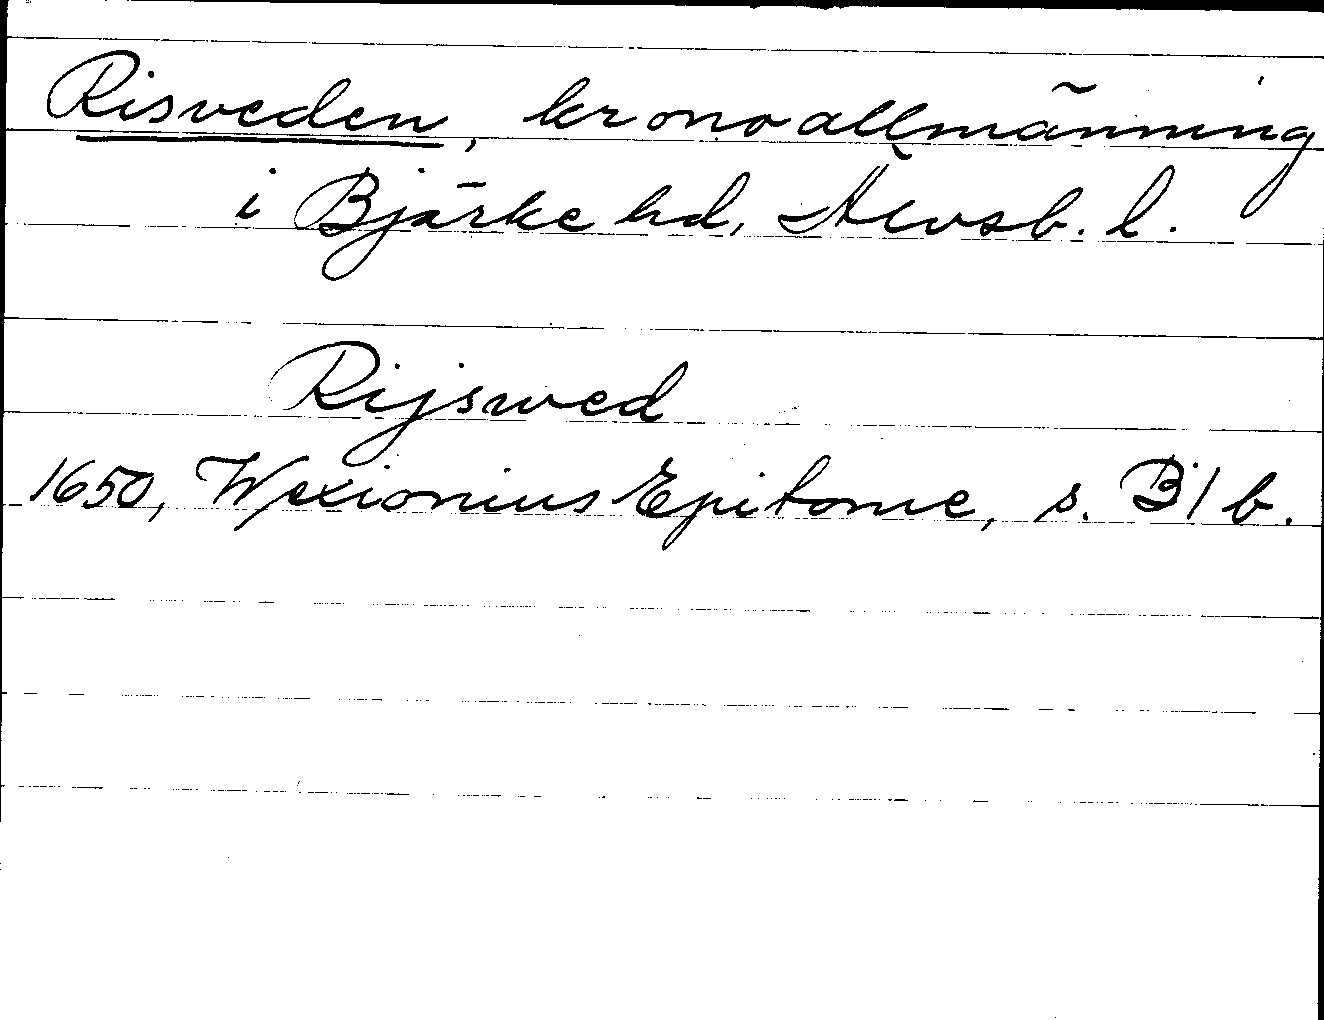 Risveden, kronoallmänning
i Bjärke hd, Älvsb. l.
Rijswed
1650, Wexionius Epitome, s. B1b.